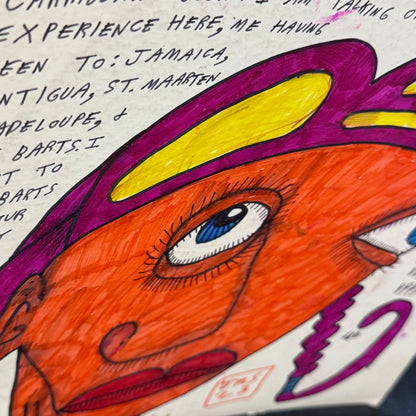 I AM TALKING
EXPERIENCE HERE, ME HAVING
EEN TO: JAMAICA,
NTIGUA, ST. MAARTEN
ADELOUPE, &
BARTS. I
T TO
BARTS
TUR
T